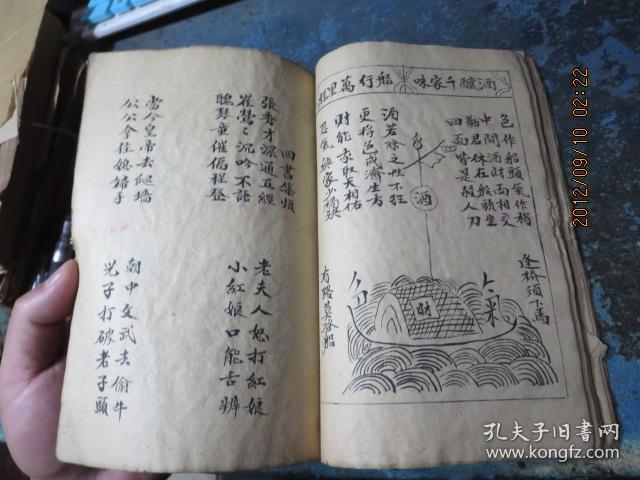 酒釀千家味 船行萬里
色作船頭氣作梢
中間酒財兩相交
勸君休在船頭坐
四面皆是殺人刀
酒若除之性不狂
更將色戒濟生方
財能求取天相佑
忍氣
酒
逢橋須下馬
有路莫登船
財
氣
四書集頌
張秀才深通五經
崔鶯々沉吟不語
醜琴童催偪程登
當今皇帝去爬墻
公公拿住媳婦手
老夫人怒打紅娘
小紅娘口能舌辨
朝中文武去偷牛
兒子打破老子頭
2012/09/10 02:22
孔夫子旧書网
www.kongfz.com